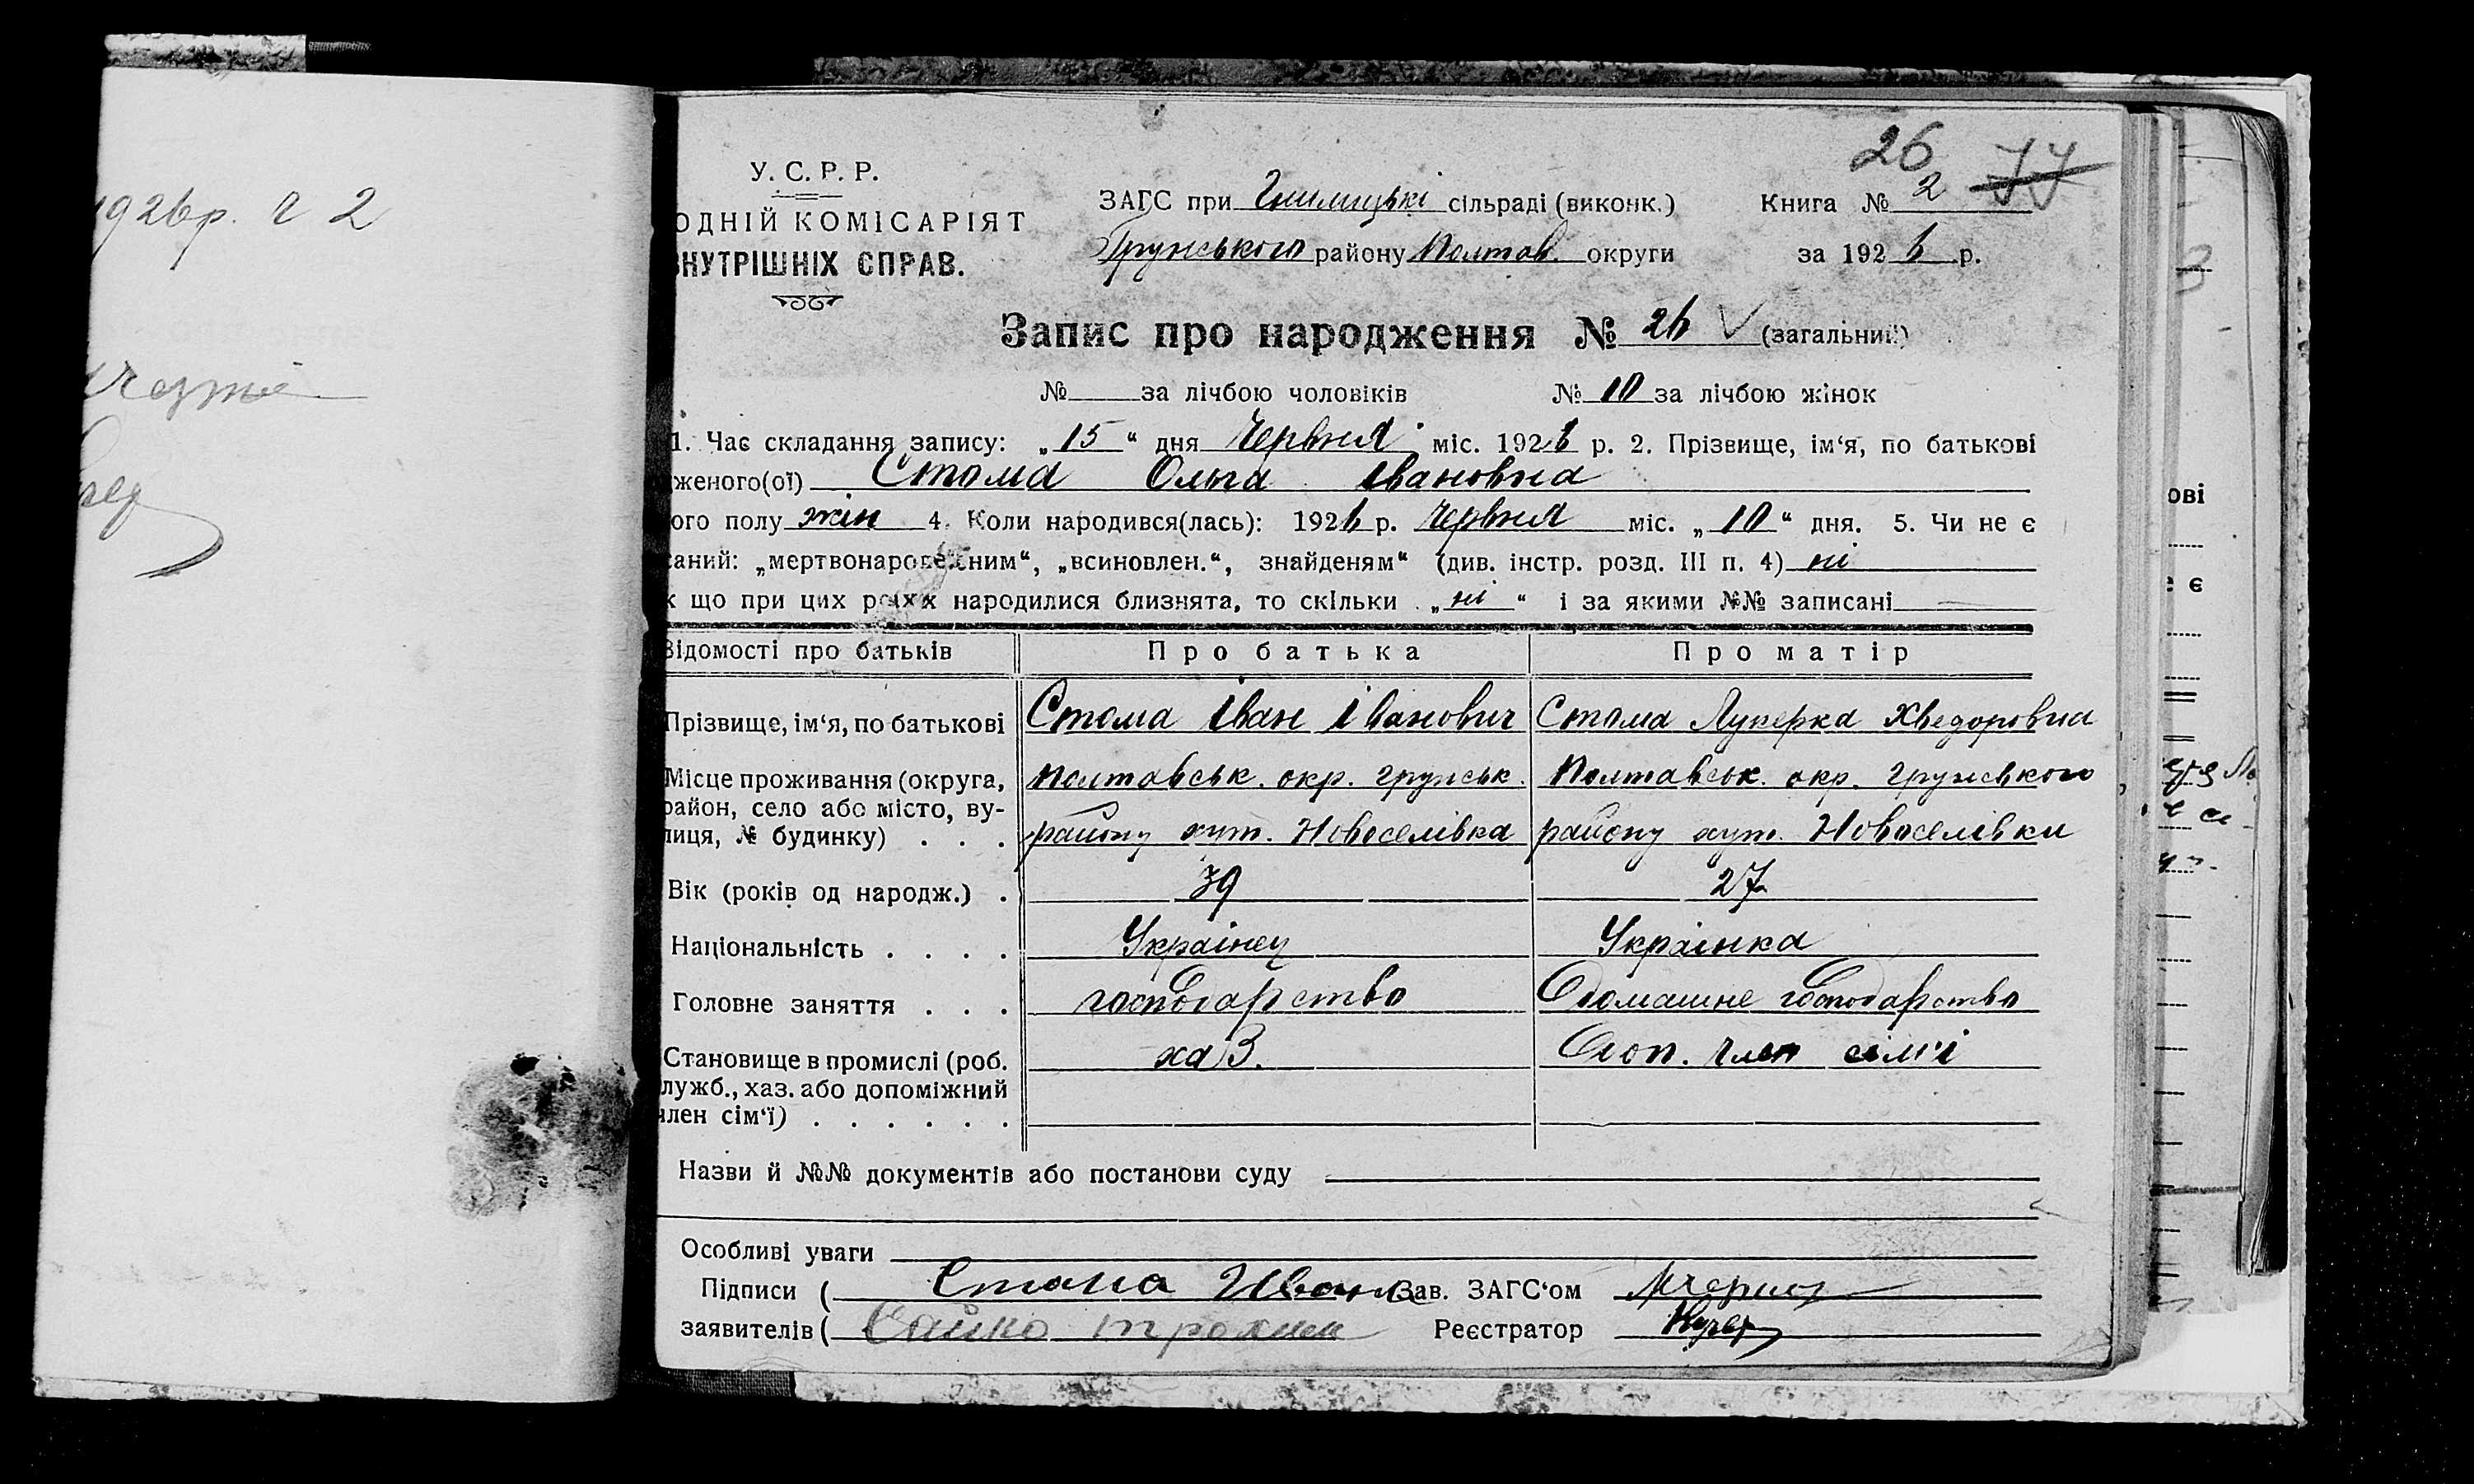 1926р. ч 2
26 77
У. С. Р. Р.
ОДНІЙ КОМІСАРІЯТ
НУТРІШНІХ СПРАВ.
ЗАГС при сільраді (виконк.) Книга № 2
Грунського району Полтав. округи за 1926 р.
Запис про народження № 26 (загальний)
№ за лічбою чоловіків № 10 за лічбою жінок
1. Час складання запису: „15“ дня Червня міс. 1926 р. 2. Прізвище, ім‘я, по батькові
женого(ої) Стома Ольга Івановна
ого полу жін 4. Коли народився(лась): 1926 р. Червня міс. „10“ дня. 5. Чи не є
саний: „мертвонародженим“, „всиновлен.“, знайденям“ (див. інстр. розд. III п. 4) ні
к що при цих родах народилися близнята, то скільки „ні“ і за якими №№ записані
Відомості про батьків Про батька Про матір
Прізвище, ім‘я, по батькові Стома Іван Іванович Стома Лукерка Хведоровна
Місце проживання (округа, Полтавськ. окр. грунськ. Полтавськ. окр. грунського
район, село або місто, ву-
лиця, № будинку) . . . району хут. Новоселівка району хут. Новоселівки
Вік (років од народж.) . 39 27
Національність . . . . Українец Українка
Головне заняття . . . господарство Домашне господарство
Становище в промислі (роб. хаз. Доп. член сімі
лужб., хаз. або допоміжний
член сім‘ї) . . . . . .
Назви й №№ документів або постанови суду
Особливі уваги
Підписи ( Стома Иван Зав. ЗАГС‘ом
заявителів ( Сайко Реєстратор Кучер
ові
є